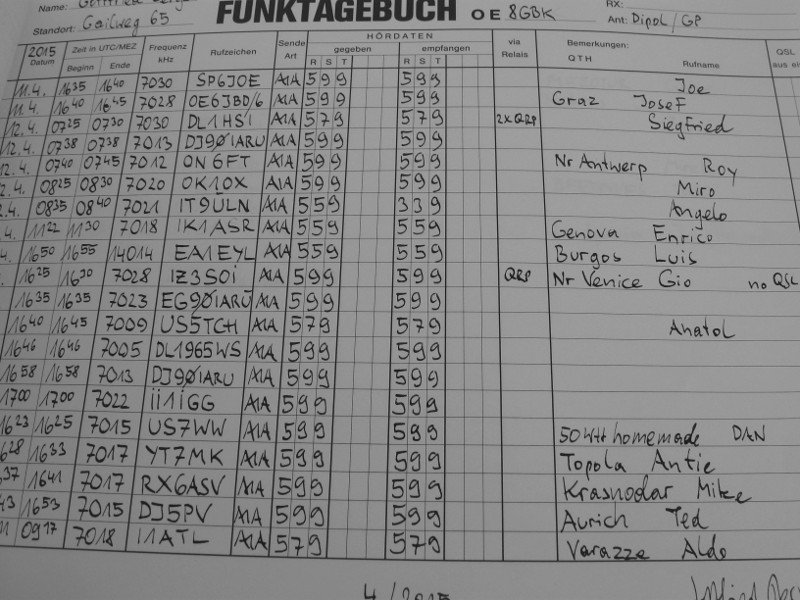 Name: RX:
FUNKTAGEBUCH OE 8GBK
Standort: Gailweg 65 Ant: Dipol/GP
HÖRDATEN
2015 Datum Zeit in UTC/MEZ Beginn Ende Frequenz kHz Rufzeichen Sende Art gegeben R S T empfangen R S T via Relais Bemerkungen: QTH Rufname QSL
11.4. 1635 1640 7030 SP6JOE A1A 599 599 Joe
11.4. 1640 1645 7028 OE6JBD/6 A1A 599 599 Graz Josef
12.4. 0725 0730 7030 DL1HSI A1A 579 579 2xQRP Siegfried
12.4. 0738 0738 7013 DJ90IARU A1A 599 599
12.4. 0740 0745 7012 ON6FT A1A 599 599 Nr Antwerp Roy
2.4. 0825 0830 7020 OK1OX A1A 599 599 Miro
2.4. 0835 0840 7021 IT9ULN A1A 559 339 Angelo
.4. 1122 1130 7018 IK1ASR A1A 559 559 Genova Enrico
4. 1650 1655 14014 EA1EYL A1A 559 559 Burgos Luis
1625 1630 7028 IZ3SOi A1A 599 599 QRP Nr Venice Gio no QSL
1635 1635 7023 EG90IARU A1A 599 599
1640 1645 7009 US5TCH A1A 579 579 Anatol
1646 1646 7005 DL1965WS A1A 599 599
1658 1658 7013 DJ90IARU A1A 599 599
1700 1700 7022 ii1iGG A1A 599 599
1623 1625 7015 US7WW A1A 599 599 50Wtt homemade DAN
628 1633 7017 YT7MK A1A 599 599 Topola Antie
37 1641 7017 RX6ASV A1A 599 599 Krasnodar Mike
43 1653 7015 DJ5PV A1A 599 599 Aurich Ted
0917 7018 I1ATL A1A 579 579 Varazze Aldo
4/2015